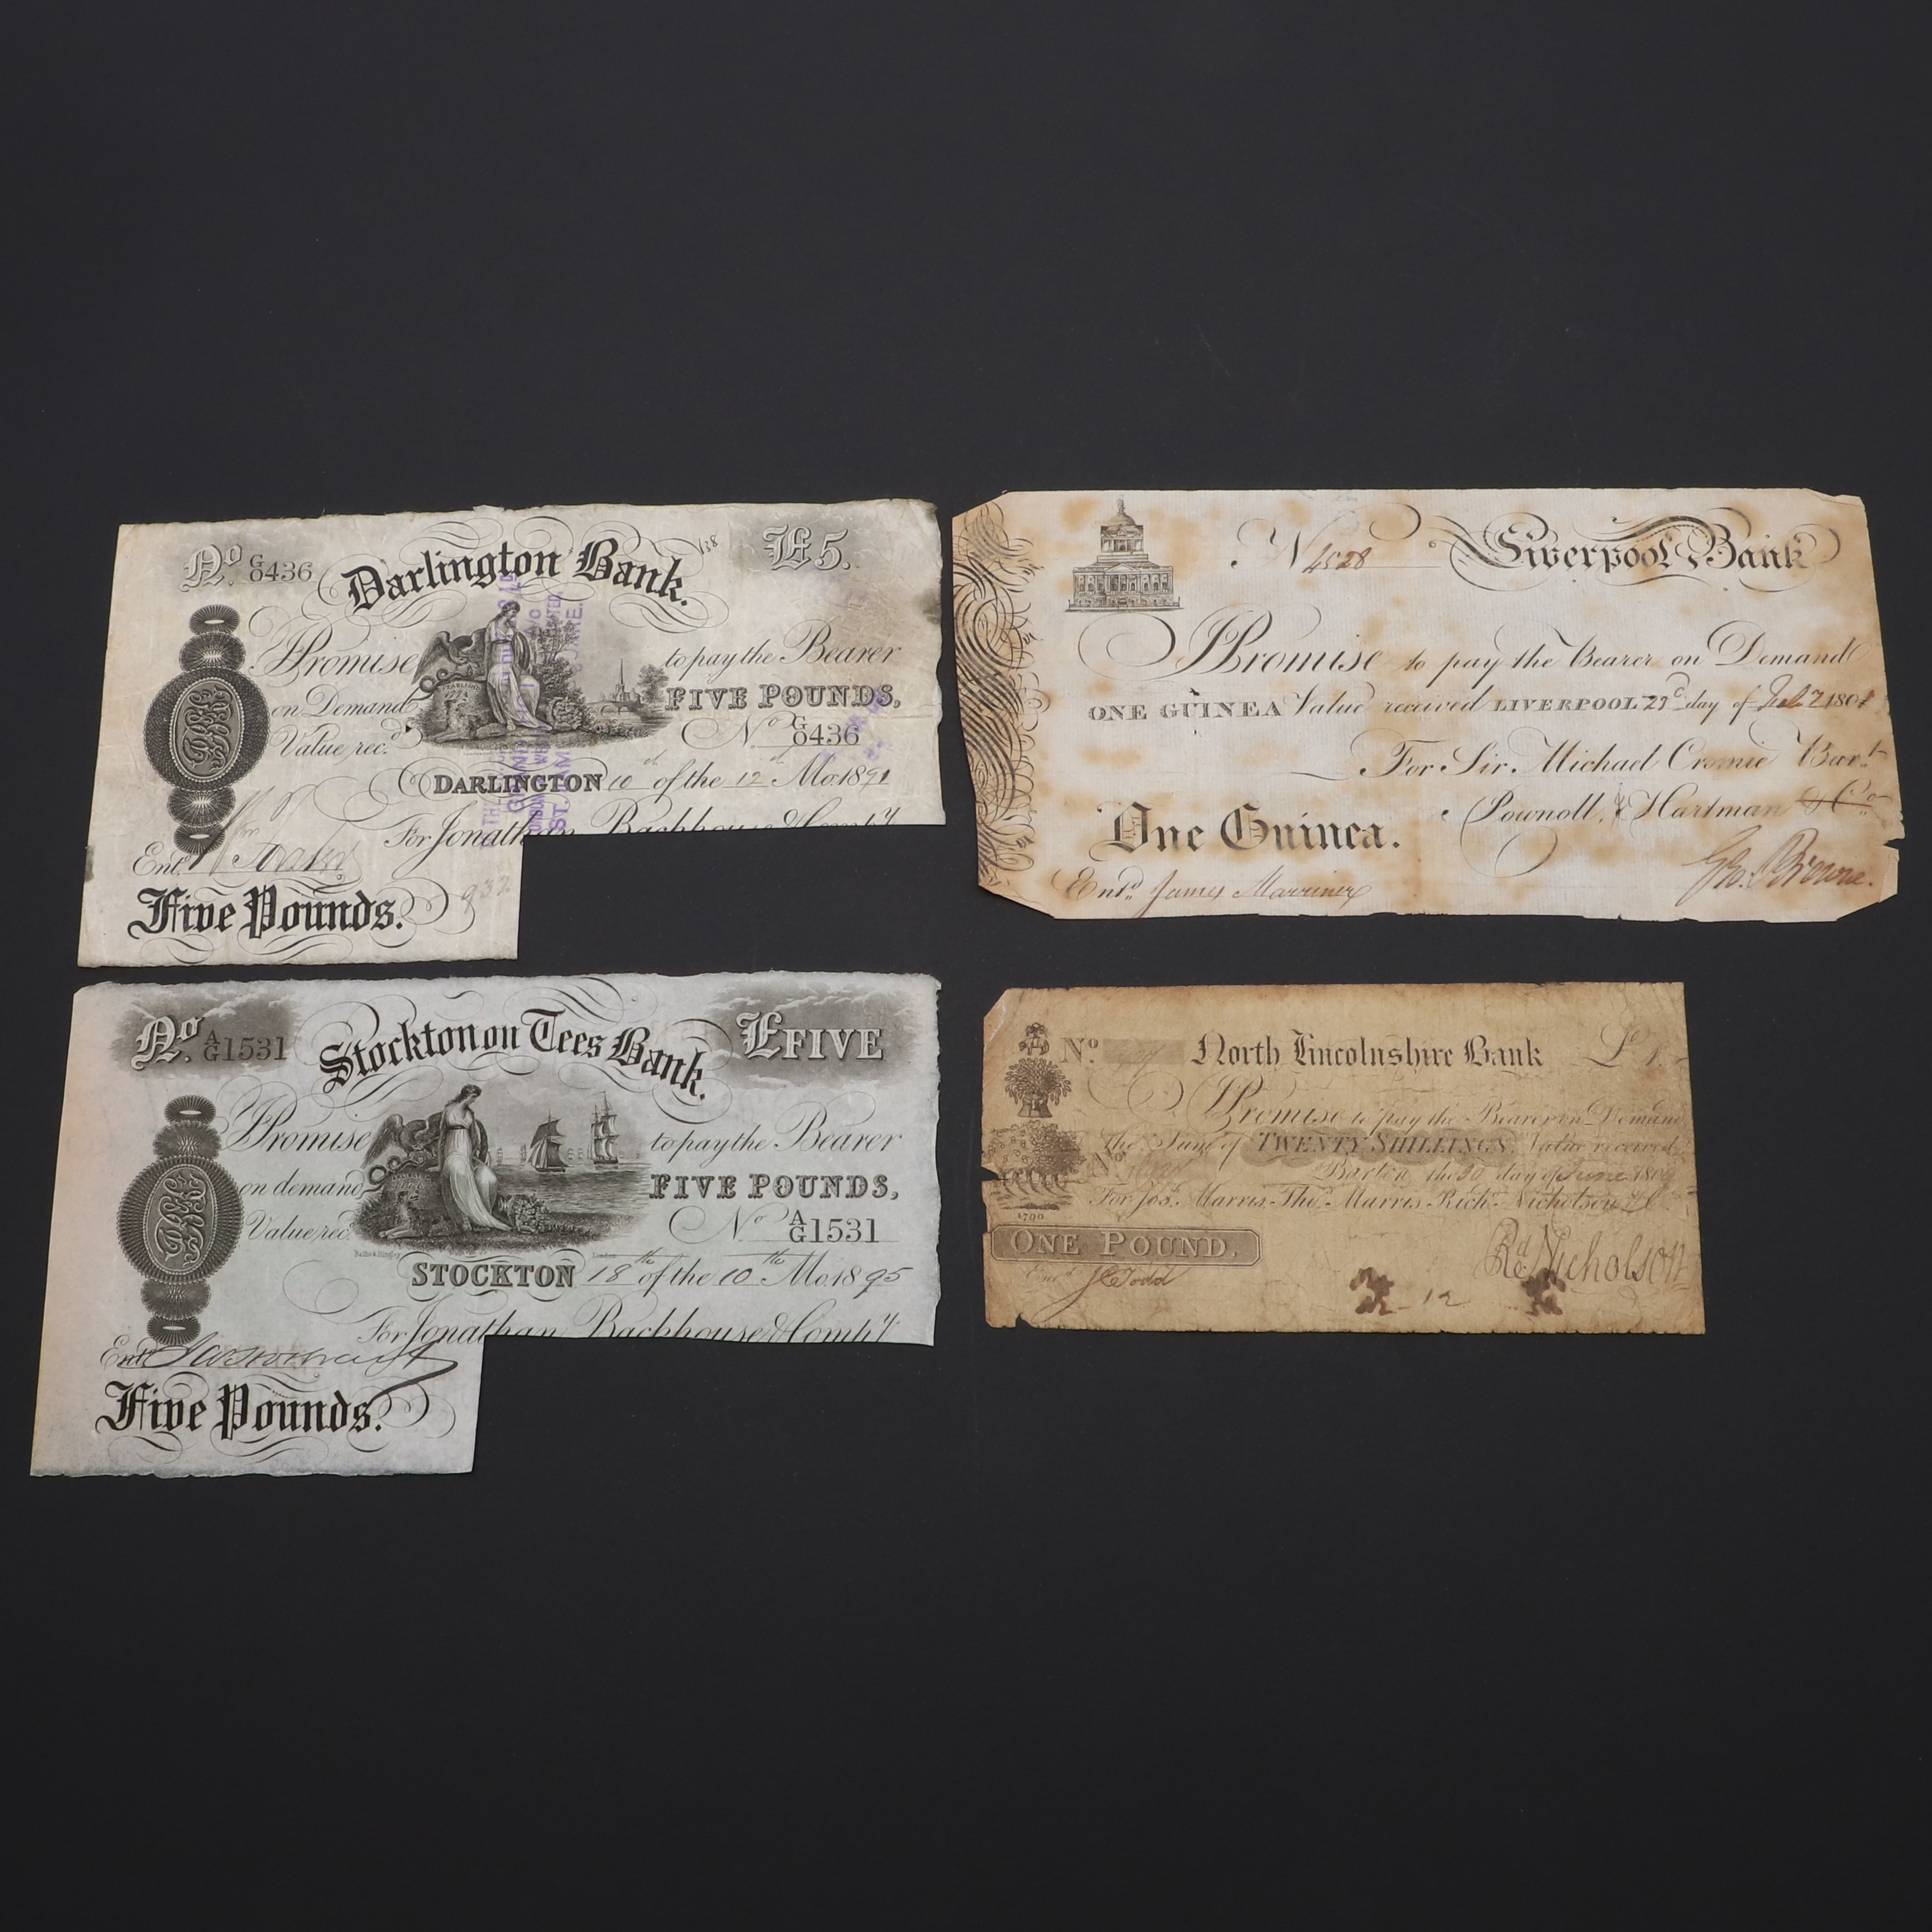 No. G/O 436 Darlington Bank. £5.
138
I Promise to pay the Bearer
on Demand FIVE POUNDS,
Value rec.d No G/O 436
DARLINGTON 10th of the 12th Mo. 1891
For Jonathan Backhouse & Comp.y
Ent.d
Five Pounds. 937
No. A/G 1531 Stockton on Tees Bank. £FIVE
I Promise to pay the Bearer
on demand FIVE POUNDS,
Value rec.d No A/G 1531
STOCKTON 18th of the 10th Mo. 1895
For Jonathan Backhouse & Comp.y
Ent.d
Five Pounds.
N 4528 Liverpool Bank
I Promise to pay the Bearer on Demand
ONE GUINEA Value received LIVERPOOL 29 day of 180
For Sir Michael Cromie Bar.t
Pownoll, & Hartman & Co.
One Guinea.
Geo. Browne.
Ent.d James Marriner
No. North Lincolnshire Bank £1.
I Promise to pay the Bearer on Demand
The Sum of TWENTY SHILLINGS, Value received
Barton the 30 day of June 180
For Jos.h Marris, Tho.s Marris, Rich.d Nicholson & Co.
1790
ONE POUND.
Rd Nicholson
Ent.d J C Todd
12